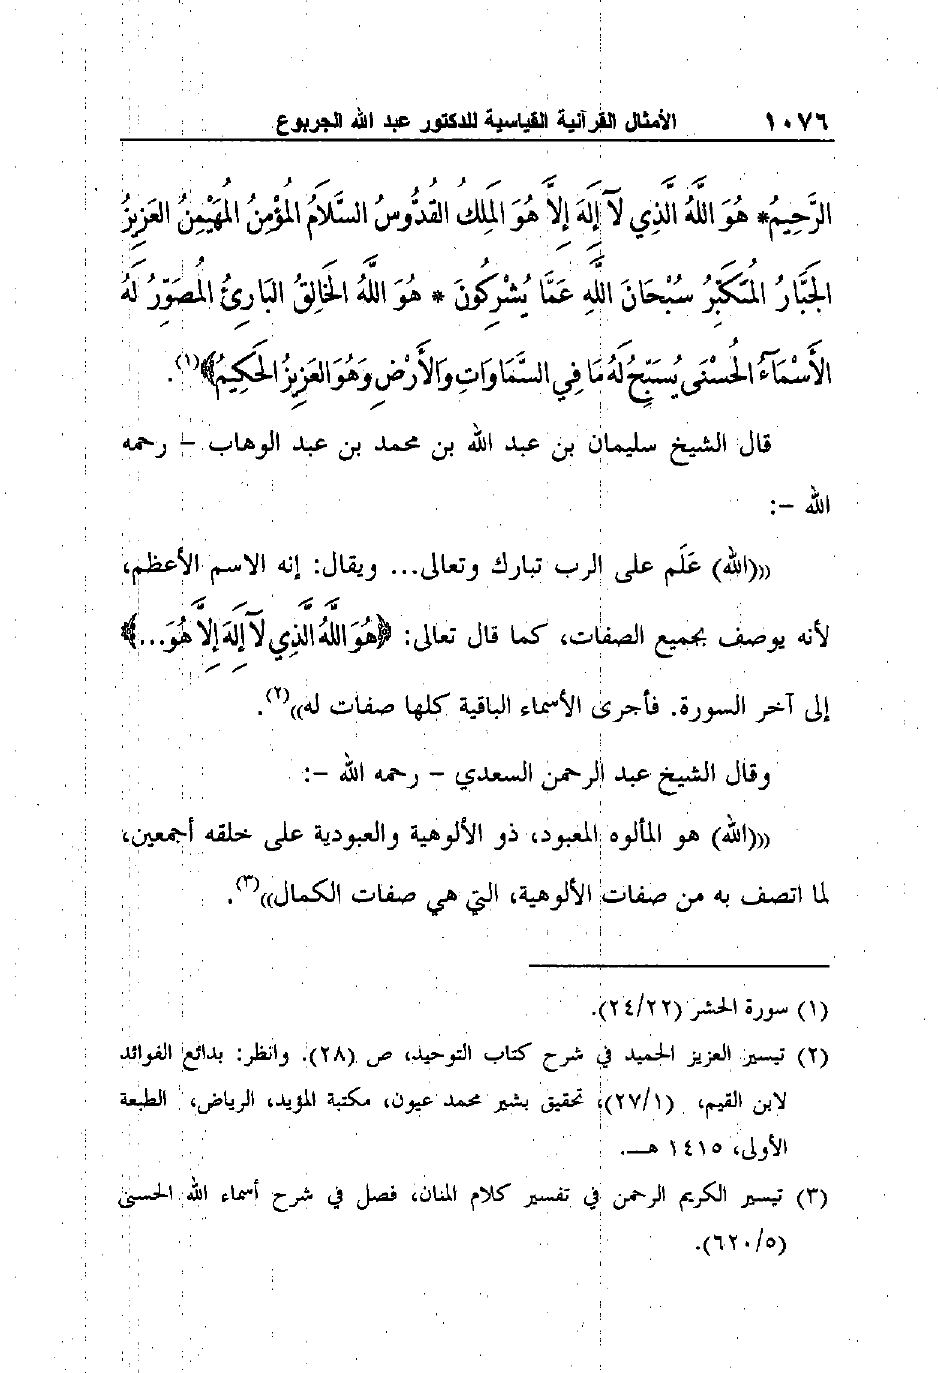 ١٠٧٦ الأمثال القرآنية القياسية للدكتور عبد الله الجربوع
الرَّحِيمُ* هُوَ اللَّهُ الَّذِي لَآ إِلَهَ إِلَّا هُوَ المَلِكُ القُدُّوسُ السَّلَامُ المُؤْمِنُ المُهَيْمِنُ العَزِيزُ
الجَبَّارُ المُتَكَبِّرُ سُبْحَانَ اللَّهِ عَمَّا يُشْرِكُونَ * هُوَ اللَّهُ الخَالِقُ البَارِئُ المُصَوِّرُ لَهُ
الأَسْمَآءُ الحُسْنَى يُسَبِّحُ لَهُ مَا فِي السَّمَاوَاتِ وَالأَرْضِ وَهُوَ العَزِيزُ الحَكِيمُ﴾(١).
قال الشيخ سليمان بن عبد الله بن محمد بن عبد الوهاب – رحمه
الله –:
((الله) عَلَم على الرب تبارك وتعالى... ويقال: إنه الاسم الأعظم،
لأنه يوصف بجميع الصفات، كما قال تعالى: ﴿هُوَ اللَّهُ الَّذِي لَآ إِلَهَ إِلَّا هُوَ...﴾
إلى آخر السورة. فأجرى الأسماء الباقية كلها صفات له))(٢).
وقال الشيخ عبد الرحمن السعدي – رحمه الله –:
((الله) هو المألوه المعبود، ذو الألوهية والعبودية على خلقه أجمعين،
لما اتصف به من صفات الألوهية، التي هي صفات الكمال))(٣).
(١) سورة الحشر (٢٤/٢٢).
(٢) تيسير العزيز الحميد في شرح كتاب التوحيد، ص (٢٨). وانظر: بدائع الفوائد
لابن القيم، (٢٧/١)، تحقيق بشير محمد عيون، مكتبة المؤيد، الرياض، الطبعة
الأولى، ١٤١٥ هـ.
(٣) تيسير الكريم الرحمن في تفسير كلام المنان، فصل في شرح أسماء الله الحسنى
(٦٢٠/٥).